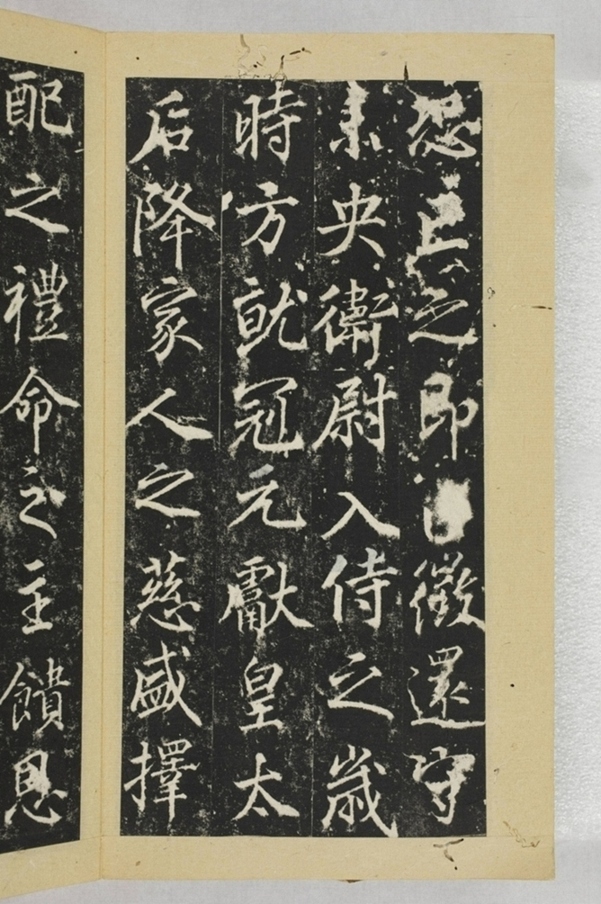 恐亡之即日徵還守
未央衛尉入侍之歲
時方就冠元獻皇太
后降家人之慈盛擇
配之禮命之主饋恩